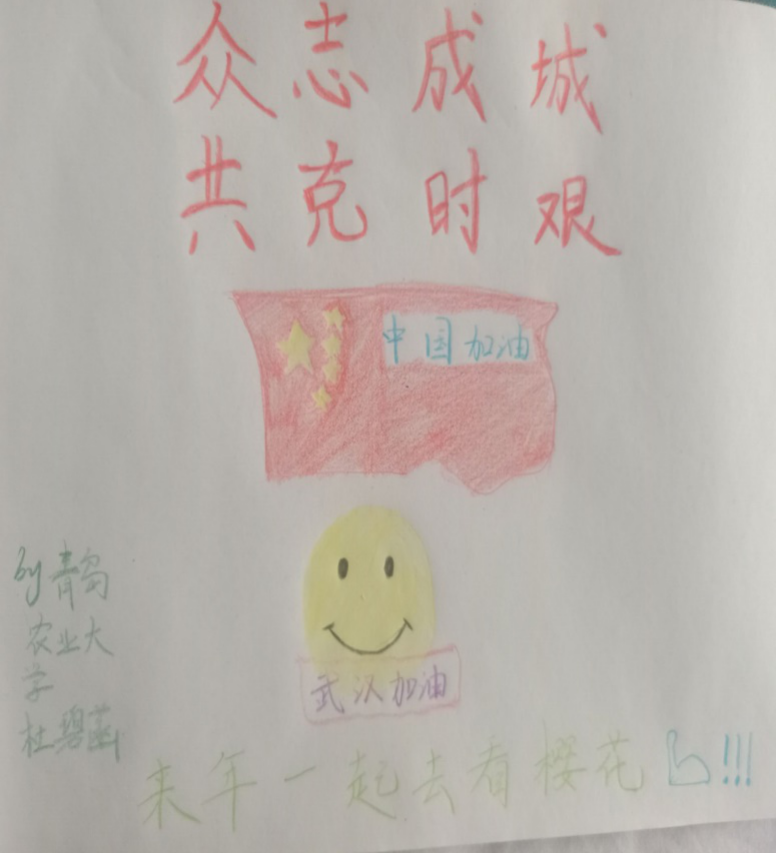 众志成城
共克时艰
中国加油
武汉加油
by青岛
农业大
学
杜碧菡
来年一起去看樱花!!!